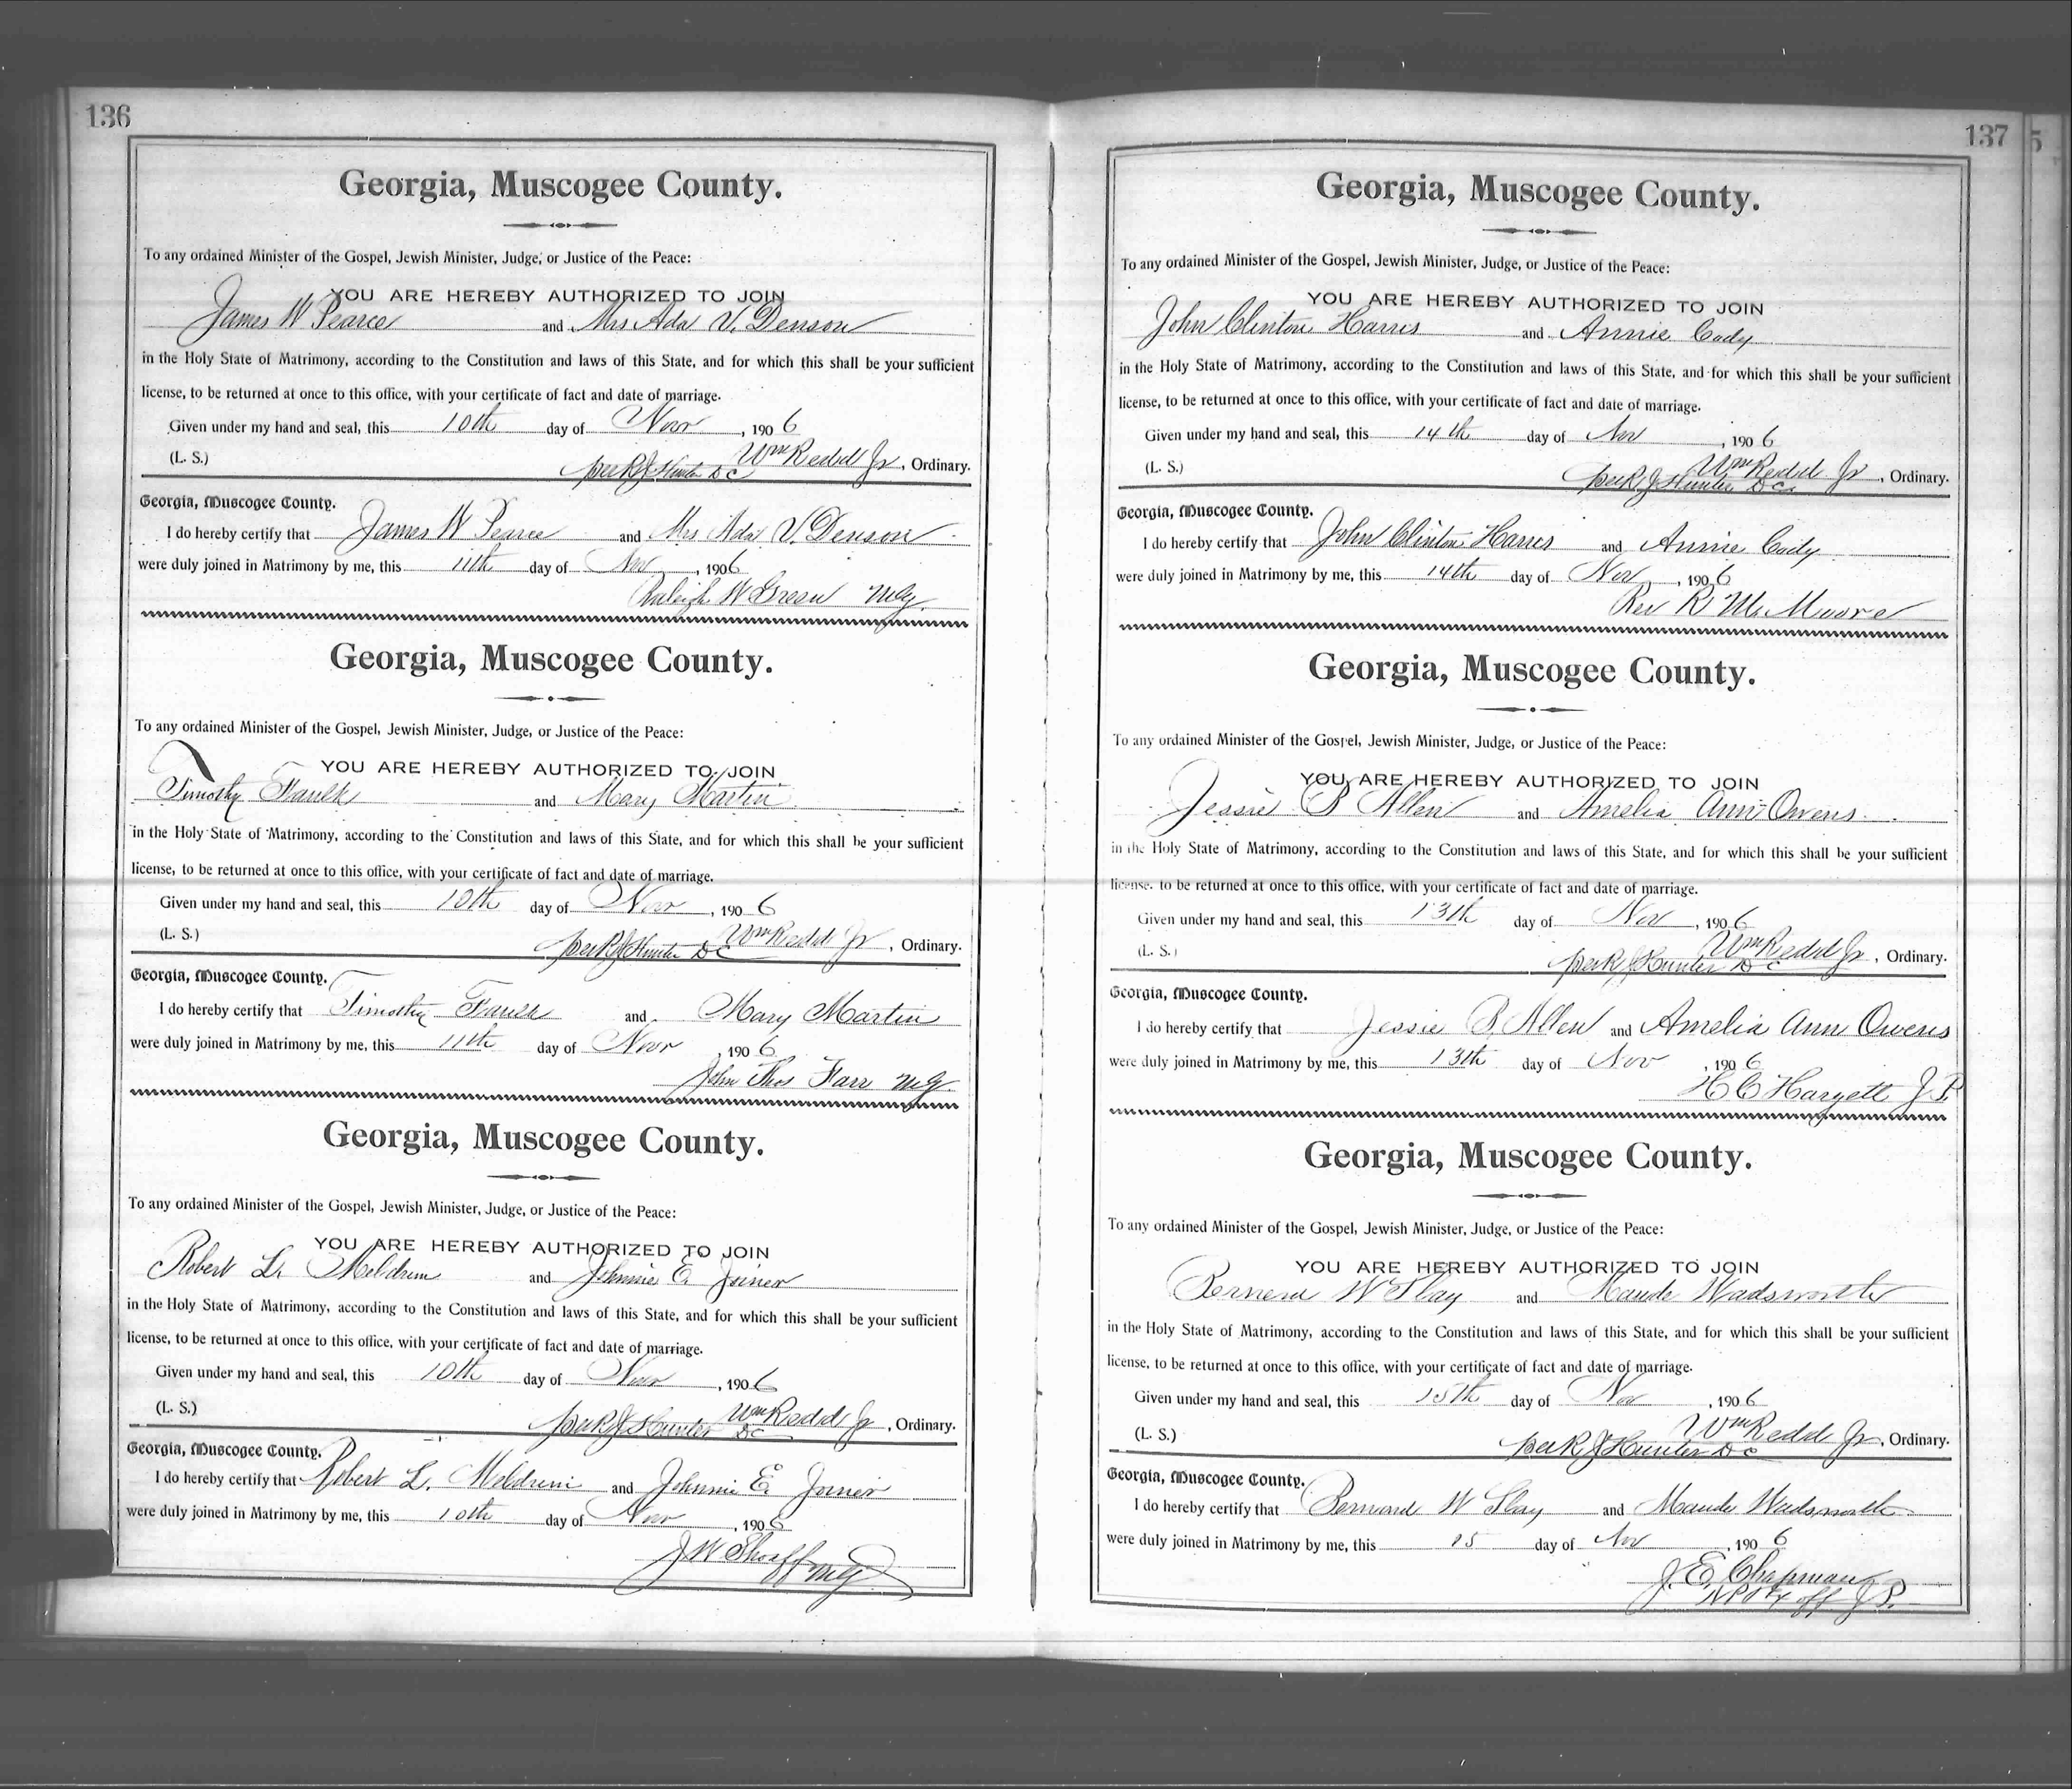 136
Georgia, Muscogee County.
To any ordained Minister of the Gospel, Jewish Minister, Judge, or Justice of the Peace:
YOU ARE HEREBY AUTHORIZED TO JOIN
James W Pearce and Mrs Ada V. Denson
in the Holy State of Matrimony, according to the Constitution and laws of this State, and for which this shall be your sufficient
license, to be returned at once to this office, with your certificate of fact and date of marriage.
Given under my hand and seal, this 10th day of Nov, 1906
(L. S.) Wm Redd Jr, Ordinary.
per R J Hunter DC
Georgia, Muscogee County.
I do hereby certify that James W Pearce and Mrs Ada V. Denson
were duly joined in Matrimony by me, this 11th day of Nov, 1906
Raleigh W Green MG.
Georgia, Muscogee County.
To any ordained Minister of the Gospel, Jewish Minister, Judge, or Justice of the Peace:
YOU ARE HEREBY AUTHORIZED TO JOIN
Timothy Faulk and Mary Martin
in the Holy State of Matrimony, according to the Constitution and laws of this State, and for which this shall be your sufficient
license, to be returned at once to this office, with your certificate of fact and date of marriage.
Given under my hand and seal, this 10th day of Nov, 1906
(L. S.) Wm Redd Jr, Ordinary.
per R J Hunter DC
Georgia, Muscogee County.
I do hereby certify that Timothy Faulk and Mary Martin
were duly joined in Matrimony by me, this 11th day of Nov, 1906
John Thos Farr MG.
Georgia, Muscogee County.
To any ordained Minister of the Gospel, Jewish Minister, Judge, or Justice of the Peace:
YOU ARE HEREBY AUTHORIZED TO JOIN
Robert L. Meldrim and Johnnie E. Joiner
in the Holy State of Matrimony, according to the Constitution and laws of this State, and for which this shall be your sufficient
license, to be returned at once to this office, with your certificate of fact and date of marriage.
Given under my hand and seal, this 10th day of Nov, 1906
(L. S.) Wm Redd Jr, Ordinary.
per R J Hunter DC
Georgia, Muscogee County.
I do hereby certify that Robert L. Meldrim and Johnnie E. Joiner
were duly joined in Matrimony by me, this 10th day of Nov, 1906
J W Shoaff MG
137
Georgia, Muscogee County.
To any ordained Minister of the Gospel, Jewish Minister, Judge, or Justice of the Peace:
YOU ARE HEREBY AUTHORIZED TO JOIN
John Clinton Harris and Annie Cody
in the Holy State of Matrimony, according to the Constitution and laws of this State, and for which this shall be your sufficient
license, to be returned at once to this office, with your certificate of fact and date of marriage.
Given under my hand and seal, this 14th day of Nov, 1906
(L. S.) Wm Redd Jr, Ordinary.
per R J Hunter DC
Georgia, Muscogee County.
I do hereby certify that John Clinton Harris and Annie Cody
were duly joined in Matrimony by me, this 14th day of Nov, 1906
Rev R. M. Moore
Georgia, Muscogee County.
To any ordained Minister of the Gospel, Jewish Minister, Judge, or Justice of the Peace:
YOU ARE HEREBY AUTHORIZED TO JOIN
Jessie B Allen and Amelia Ann Owens
in the Holy State of Matrimony, according to the Constitution and laws of this State, and for which this shall be your sufficient
license, to be returned at once to this office, with your certificate of fact and date of marriage.
Given under my hand and seal, this 13th day of Nov, 1906
(L. S.) Wm Redd Jr, Ordinary.
per R J Hunter DC
Georgia, Muscogee County.
I do hereby certify that Jessie B. Allen and Amelia Ann Owens
were duly joined in Matrimony by me, this 13th day of Nov, 1906
H C Hargett J.P.
Georgia, Muscogee County.
To any ordained Minister of the Gospel, Jewish Minister, Judge, or Justice of the Peace:
YOU ARE HEREBY AUTHORIZED TO JOIN
Bernard W Slay and Maude Wadsworth
in the Holy State of Matrimony, according to the Constitution and laws of this State, and for which this shall be your sufficient
license, to be returned at once to this office, with your certificate of fact and date of marriage.
Given under my hand and seal, this 15th day of Nov, 1906
(L. S.) Wm Redd Jr, Ordinary.
per R J Hunter DC
Georgia, Muscogee County.
I do hereby certify that Bernard W Slay and Maude Wadsworth
were duly joined in Matrimony by me, this 15 day of Nov, 1906
J. E. Chapman
NP & Ex off J.P.